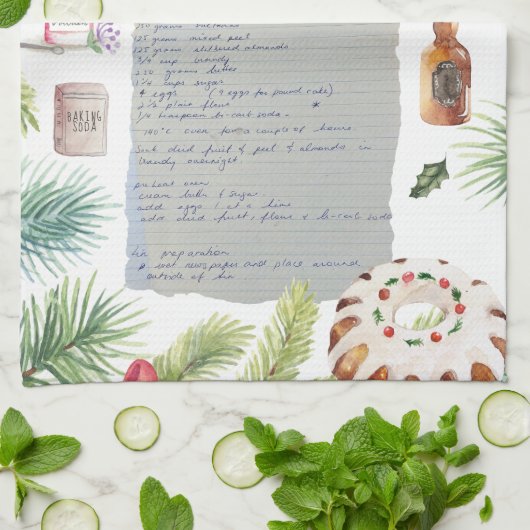 250 grams sultanas
125 grams mixed peel
125 grams slithered almonds
3/4 cup brandy
250 grams butter
1 1/4 cups sugar
4 eggs (9 eggs for pound cake).
2 1/2 plain flour *
1/4 teaspoon bi-carb soda.
140°C oven for a couple of hours.
Soak dried fruit & peel & almonds in
brandy overnight.
preheat oven
cream butter & sugar.
add eggs 1 at a time
add dried fruit, flour & bi-carb soda
tin preparation
wet newspaper and place around
outside of tin
BAKING
SODA